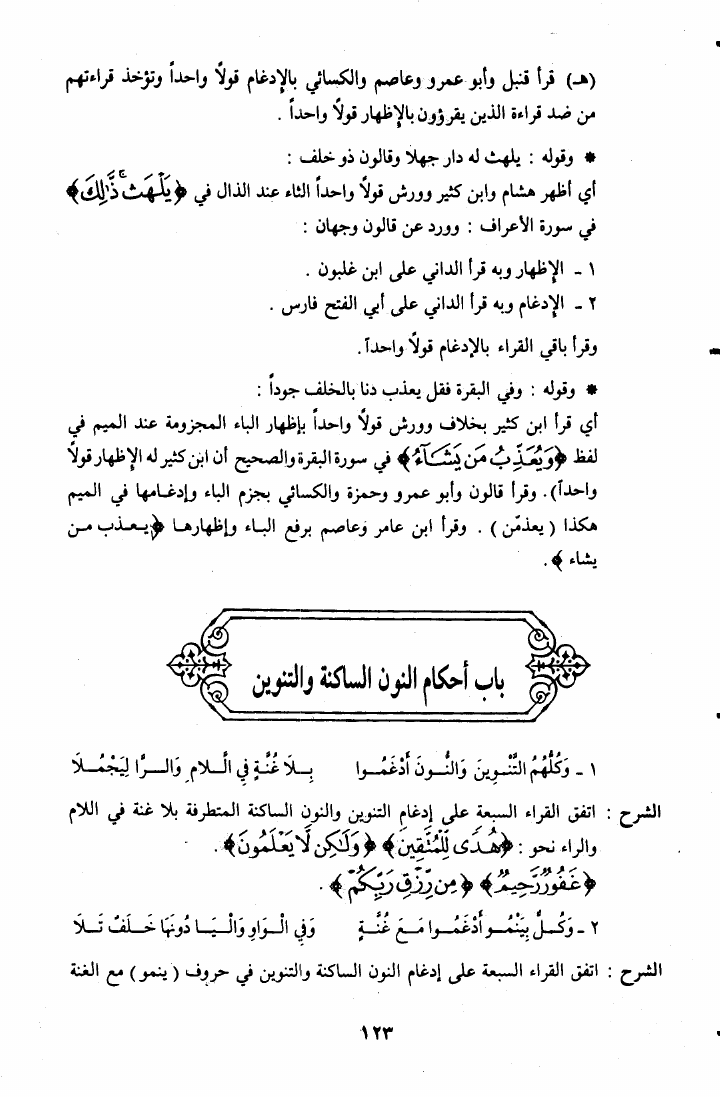 (هـ) قرأ قنبل وأبو عمرو وعاصم والكسائي بالإدغام قولاً واحداً وتؤخذ قراءتهم
من ضد قراءة الذين يقرؤون بالإظهار قولاً واحداً .
* وقوله : يلهث له دار جهلا وقالون ذو خلف :
أي أظهر هشام وابن كثير وورش قولاً واحداً الثاء عند الذال في ﴿يَلْهَثْ ذَّٰلِكَ﴾
في سورة الأعراف : وورد عن قالون وجهان :
١ - الإظهار وبه قرأ الداني على ابن غلبون .
٢ - الإدغام وبه قرأ الداني على أبي الفتح فارس .
وقرأ باقي القراء بالإدغام قولاً واحداً.
* وقوله : وفي البقرة فقل يعذب دنا بالخلف جوداً :
أي قرأ ابن كثير بخلاف وورش قولاً واحداً بإظهار الباء المجزومة عند الميم في
لفظ ﴿وَيُعَذِّبُ مَن يَشَآءُ﴾ في سورة البقرة والصحيح أن ابن كثير له الإظهار قولاً
واحداً). وقرأ قالون وأبو عمرو وحمزة والكسائي بجزم الباء وإدغامها في الميم
هكذا ( يعذمّن ) . وقرأ ابن عامر وعاصم برفع الباء وإظهارها ﴿يعذب من
يشاء ﴾ .
باب أحكام النون الساكنة والتنوين
١ - وَكُلُّهُمُ التَّنْوِينَ وَالنُّونَ أَدْغَمُوا بِلَا غُنَّةٍ فِي الَّلامِ وَالرَّا لِيَجْمُلَا
الشرح : اتفق القراء السبعة على إدغام التنوين والنون الساكنة المتطرفة بلا غنة في اللام
والراء نحو : ﴿هُدًى لِّلْمُتَّقِينَ﴾ ﴿وَلَٰكِن لَّا يَعْلَمُونَ﴾ .
﴿غَفُورٌ رَّحِيمٌ﴾ ﴿مِن رِّزْقِ رَبِّكُمْ﴾ .
٢ - وَكُلٌّ بِيَنْمُو أَدْغَمُوا مَعَ غُنَّةٍ وَفِي الْوَاوِ وَالْيَا دُونَهَا خَلَفٌ تَلَا
الشرح : اتفق القراء السبعة على إدغام النون الساكنة والتنوين في حروف ( ينمو ) مع الغنة
١٢٣